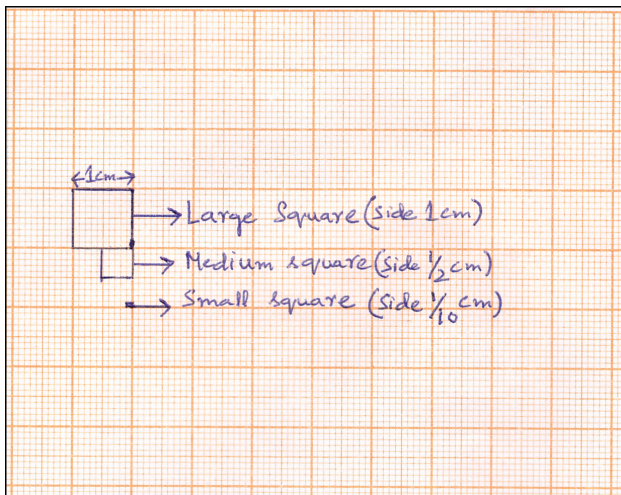 1cm
Large Square (side 1cm)
Medium square (side 1/2 cm)
Small square (side 1/10 cm)